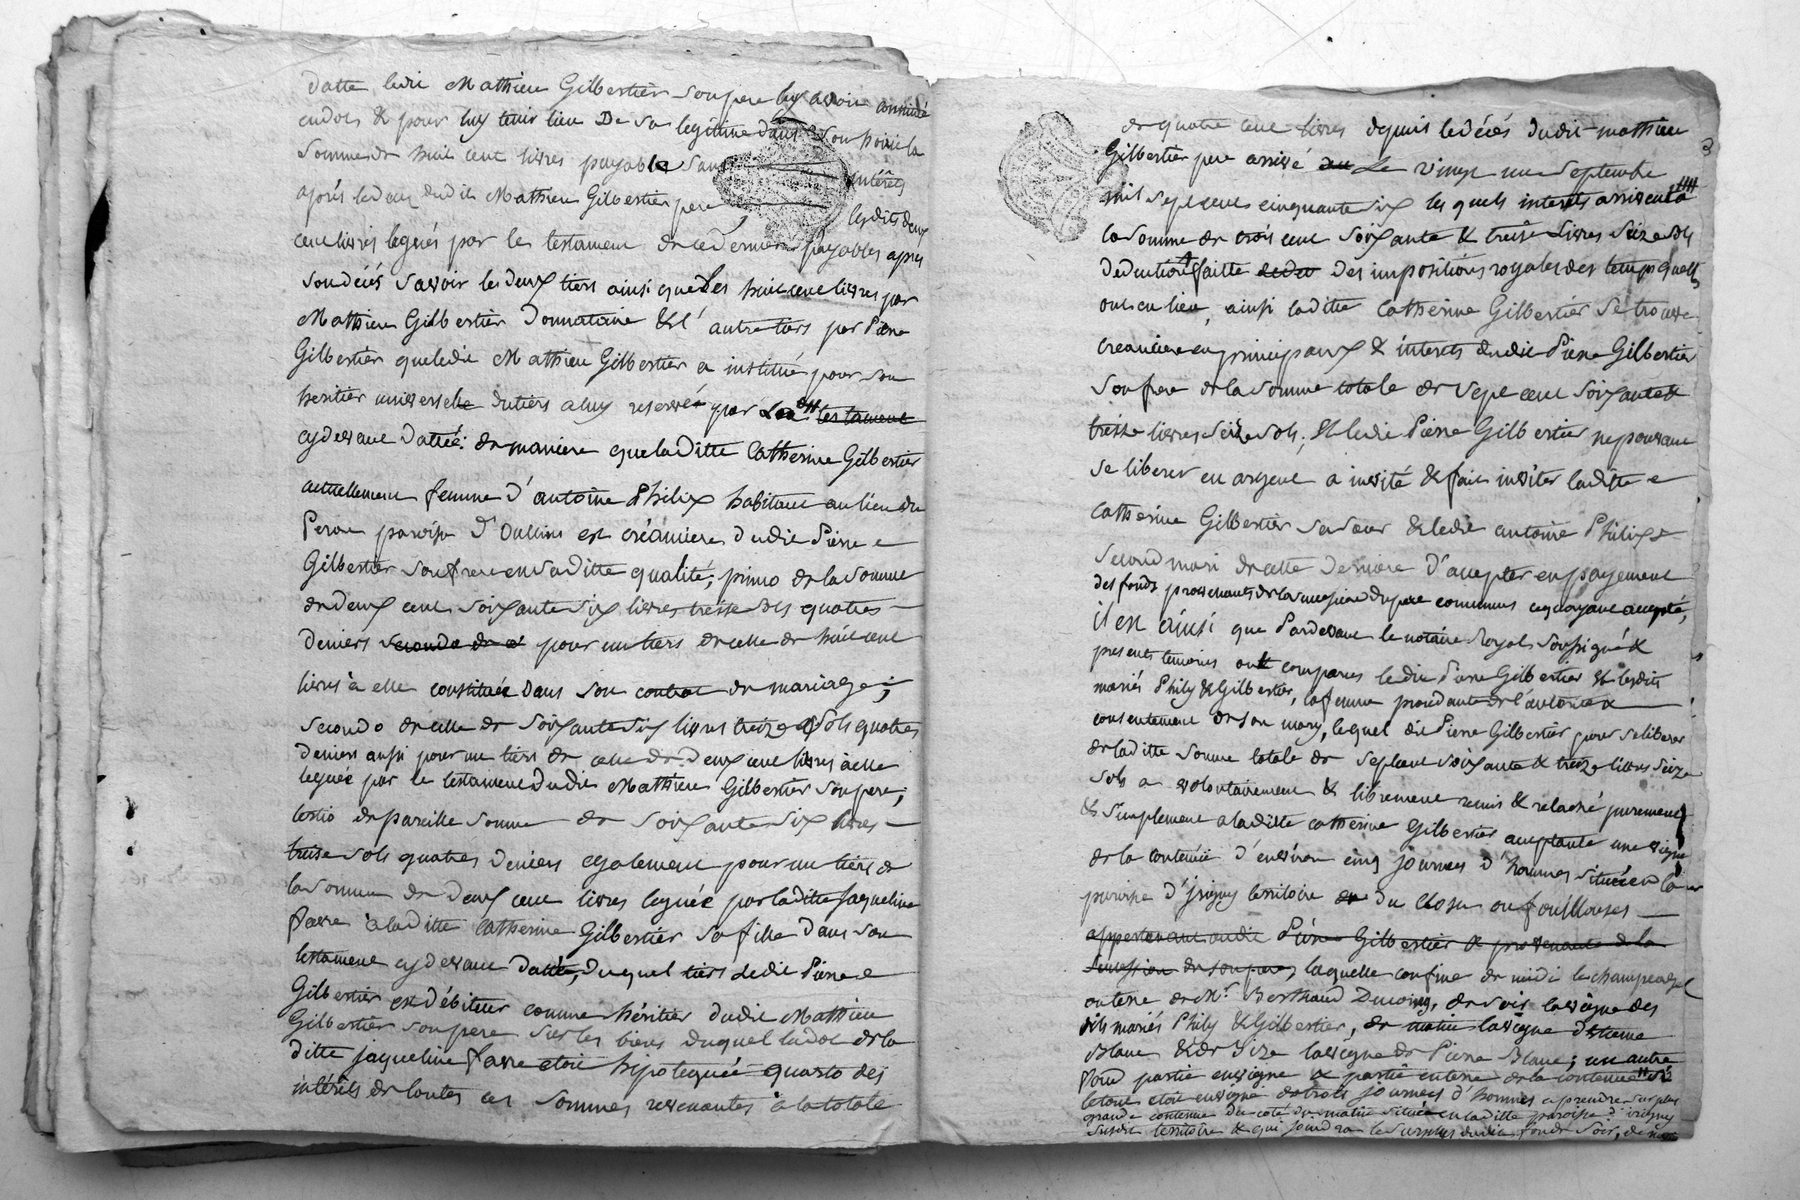 datte ledit Mathieu Gilbertier son pere luy avoir constitué
en dot & pour luy tenir lieu De sa legitime dans son hoirie la
somme de huit cent livres payable sans
interêts
après le deces dudit Mathieu Gilbertier pere,
lesdits deux
cent livres legués par les testament de ce dernier payables apres
son décés savoir les deux tiers ainsi que Les huit cent livres par
Mathieu Gilbertier Donnataire & l'autre tiers par Piere
Gilbertier que ledit Mathieu Gilbertier a institué pour son
heritier universelle du tiers a luy reservé par testament
cydevant datté: de maniere que laditte Catherine Gilbertier
actuellement femme d'antoine Philix habitant au lieu du
Peron paroisse d'Oullins est créanciere dudit Piere
Gilbertier son frere en saditte qualité; primo de la somme
de deux cent soixante six livres treise sols quatres
deniers secondo de pour un tiers de celle de huit cent
livres à elle constituée Dans son contrat de mariage;
secondo de celle de soixante six livres treize sols quatres
deniers aussi pour un tiers de celle de Deux cent livres à elle
leguée par le testament dudit Mathieu Gilbertier son pere;
tertio de pareille somme de soixante six livres
treise sols quatres deniers egalement pour un tiers de
la somme de Deux cent livres leguée par laditte jaqueline
favre à laditte Catherine Gilbertier sa fille dans son
testament cydevant datté, duquel tiers ledit Piere
Gilbertier est débiteur comme héritier dudit Mathieu
Gilbertier son pere sur les biens duquel la dot de la
ditte jaqueline favre etoit hipotequée quarto des
intérêts de toutes ces sommes revenantes à la totale
3
de quatre cent livres depuis le décés dudit mathieu
Gilbertier pere arrivé le vingt un Septembre
mil sept cent cinquante six les quels interets arrivent a
la somme de trois cent soixante & treise Livres Seize sols
deduction faitte des impositions royales des temps quelles
ont eu lieu, ainsi laditte Catherine Gilbertier se trouve
creanciere en principaux & interets dudit Piere Gilbertier
son frere de la somme totale de sept cent soixante &
treise livres seize sols; Et ledit Pierre Gilbertier ne pouvant
se liberer en argent a invité & fait inviter laditte
Catherine Gilbertier sa sœur & ledit antoine Philix
second mari de cette derniere d'accepter en payement
des fonds provenants de la succession du pere commun ce qu'ayant accepté,
il en ainsi que Pardevant le notaire Royal soussigné &
presents temoins ont comparus ledit Piere Gilbertier & lesdits
mariés Phily & Gilbertier, la femme procedante de l'autorité &
consentement de son mary, lequel dit Piere Gilbertier pour se liberer
de laditte somme totale de sept cent soixante & treize livres seize
sols a volontairement & librement remis & relaché purement
& simplement a laditte catherine Gilbertier acceptante une vigne
de la contenüe d'environ cinq journées d'hommes située en la
paroisse d'jrigny territoire du Closu ou fouillouses
appartenant audit Piere Gilbertier & provenante de la
succession de son pere, laquelle confine de midi le champ
ou terre de Mr. Berthaud Ducoing, de soir la vigne des
dits mariés Phily & Gilbertier, de matin la vigne d'etienne
Blanc & de bize la vigne de Piere Blanc; un autre
fond partie en vigne & partie en terre de la contenüe
le tout etoit en vigne de trois journées d'hommes a prendre sur plus
grande contenue du coté du matin située en laditte paroisse d'irigny
susdit territoire & qui joindra le surplus dudit fonds soir, de